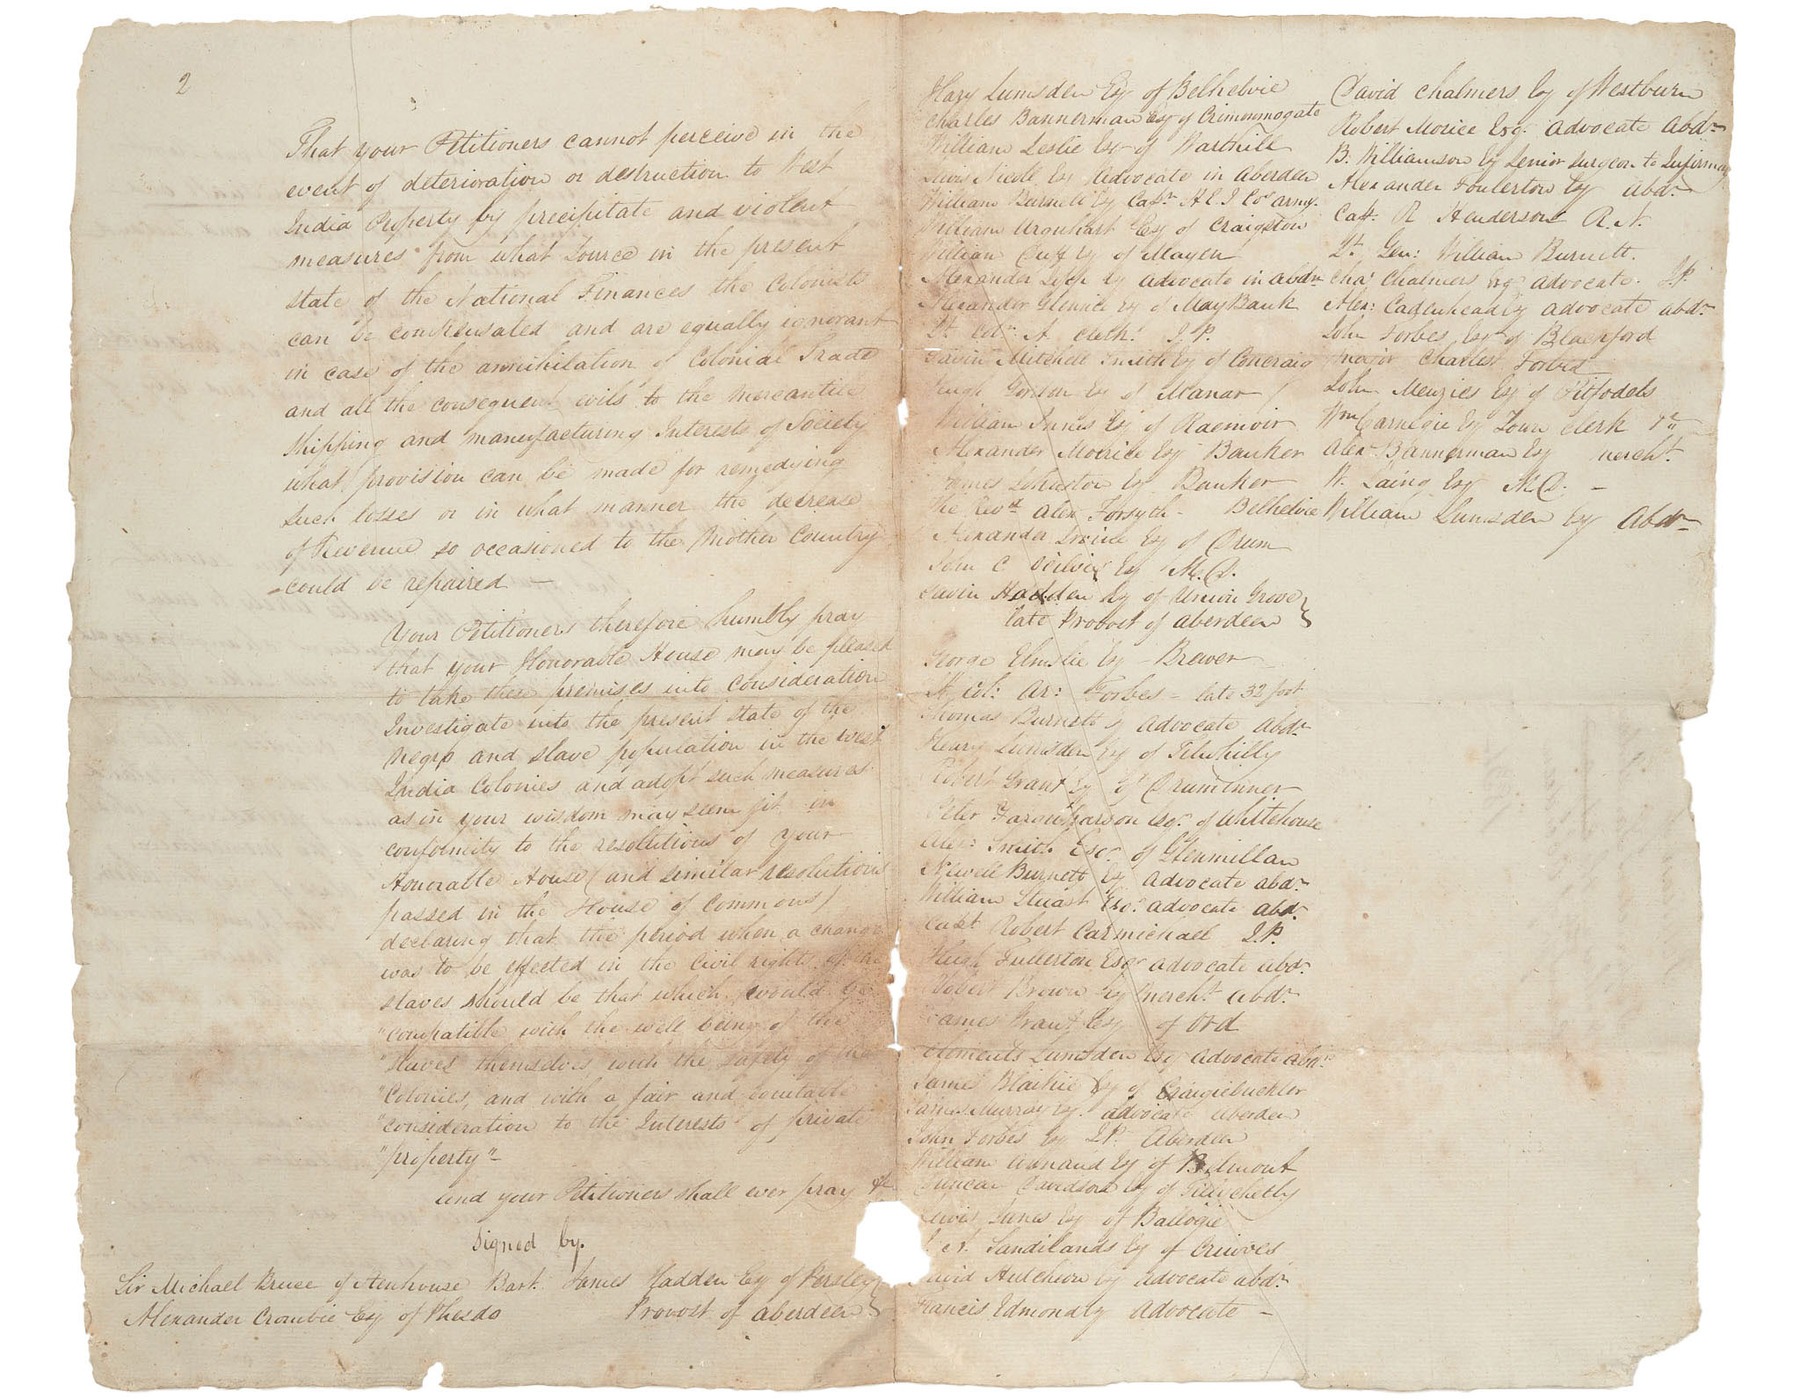 2
That your Petitioners cannot perceive in the
event of deterioration or destruction to West
India Property by precipitate and violent
measures from what Source in the present
state of the National Finances the Colonists
can be compensated and are equally ignorant
in case of the annihilation of Colonial Trade
and all the consequent evils to the mercantile
Shipping and manufacturing Interests of Society
what provision can be made for remedying
such losses or in what manner the decrease
of Revenue so occasioned to the Mother Country
could be repaired —
Your Petitioners therefore humbly pray
that your Honorable House may be pleased
to take these premises into consideration
Investigate into the present state of the
Negro and slave population in the West
India Colonies and adopt such measures
as in your wisdom may seem fit in
conformity to the resolutions of your
Honorable House (and similar resolutions
passed in the House of Commons)
declaring that the period when a change
was to be effected in the Civil rights of the
slaves should be that which would be
"compatible with the well being of the
"Slaves themselves, with the safety of the
"Colonies, and with a fair and equitable
"consideration to the Interests of private
"property"—
and your Petitioners shall ever pray &c
Signed by.
Sir Michael Bruce of Stenhouse Bart. James Hadden Esq of Persley
Alexander Crombie Esq of Phesdo Provost of Aberdeen }
Hary Lumsden Esq of Belhelvie
Charles Bannerman Esq of Crimonmogate
William Leslie Esq of Warthill
Lewis Nicole Esq Advocate in Aberdeen
William Burnett Esq Capt. H E I Co. army.
William Urquhart Esq of Craigston
William Cuff Esq of Mayen
Alexander Esq advocate in abdn
Alexander Glennie Esq of MayBank
Lt Coln. A J.P.
Gavin Mitchell Smith Esq of Concraig
Hugh Gordon Esq of Manar /
William Innes Esq of Raemoir
Alexander Morice Esq Banker
James Johnston Esq Banker
The Revd. Alex Forsyth — Belhelvie
Alexander Irvine Esq of Drum
John C Ogilvie Esq M.D.
Gavin Hadden Esq of Union Grove }
late Provost of Aberdeen }
George Elmslie Esq — Brewer
Lt. Col: Ar: Forbes — late 32 foot
Thomas Burnett Advocate Abdn
Henry Lumsden Esq of Tilwhilly
Robert Grant Esq of Druminner
Peter Farquharson Esqr. of Whitehouse
Alexr Smith Esqr. of Glenmillan
Newell Burnett Esq advocate abdn
William Stuart Esqr. advocate abdn
Capt Robert Carmichael J.P.
Hugh Fullerton Esqr advocate abdn.
Robert Brown Esq Mercht. abdn
James Grant Esq of Ord
Clements Lumsden Esq advocate abdn
James Blaikie Esq of Craigiebuckler
James Murray Esq. advocate aberdeen
John Forbes Esq J.P. Aberdeen
William Adnaud Esq of Belmont
Duncan Davidson Esq of Tillychetly
Lewis Innes Esq of Ballogie
Sandilands Esq of Cruives
David Hutcheon Esq advocate abdn
Francis Edmond Esq Advocate —
David Chalmers Esq of Westburn
Robert Morice Esqr. advocate abdn
B. Williamson Esq Senior Surgeon to Infirmary
Alexander Foulerton Esq abdn
Capt. R Henderson R.N.
Lt. Gen: William Burnett.
Chas Chalmers Esq advocate. J.P.
Alexr Cadenhead Esq advocate abdn
John Forbes Esqr of Blackford
Major Charles Forbes
John Menzies Esq of Pitfodels
Wm Carnegie Esq Town Clerk
Alexr Bannerman Esq mercht.
W. Laing Esq M.D. —
William Lumsden Esq Abdn